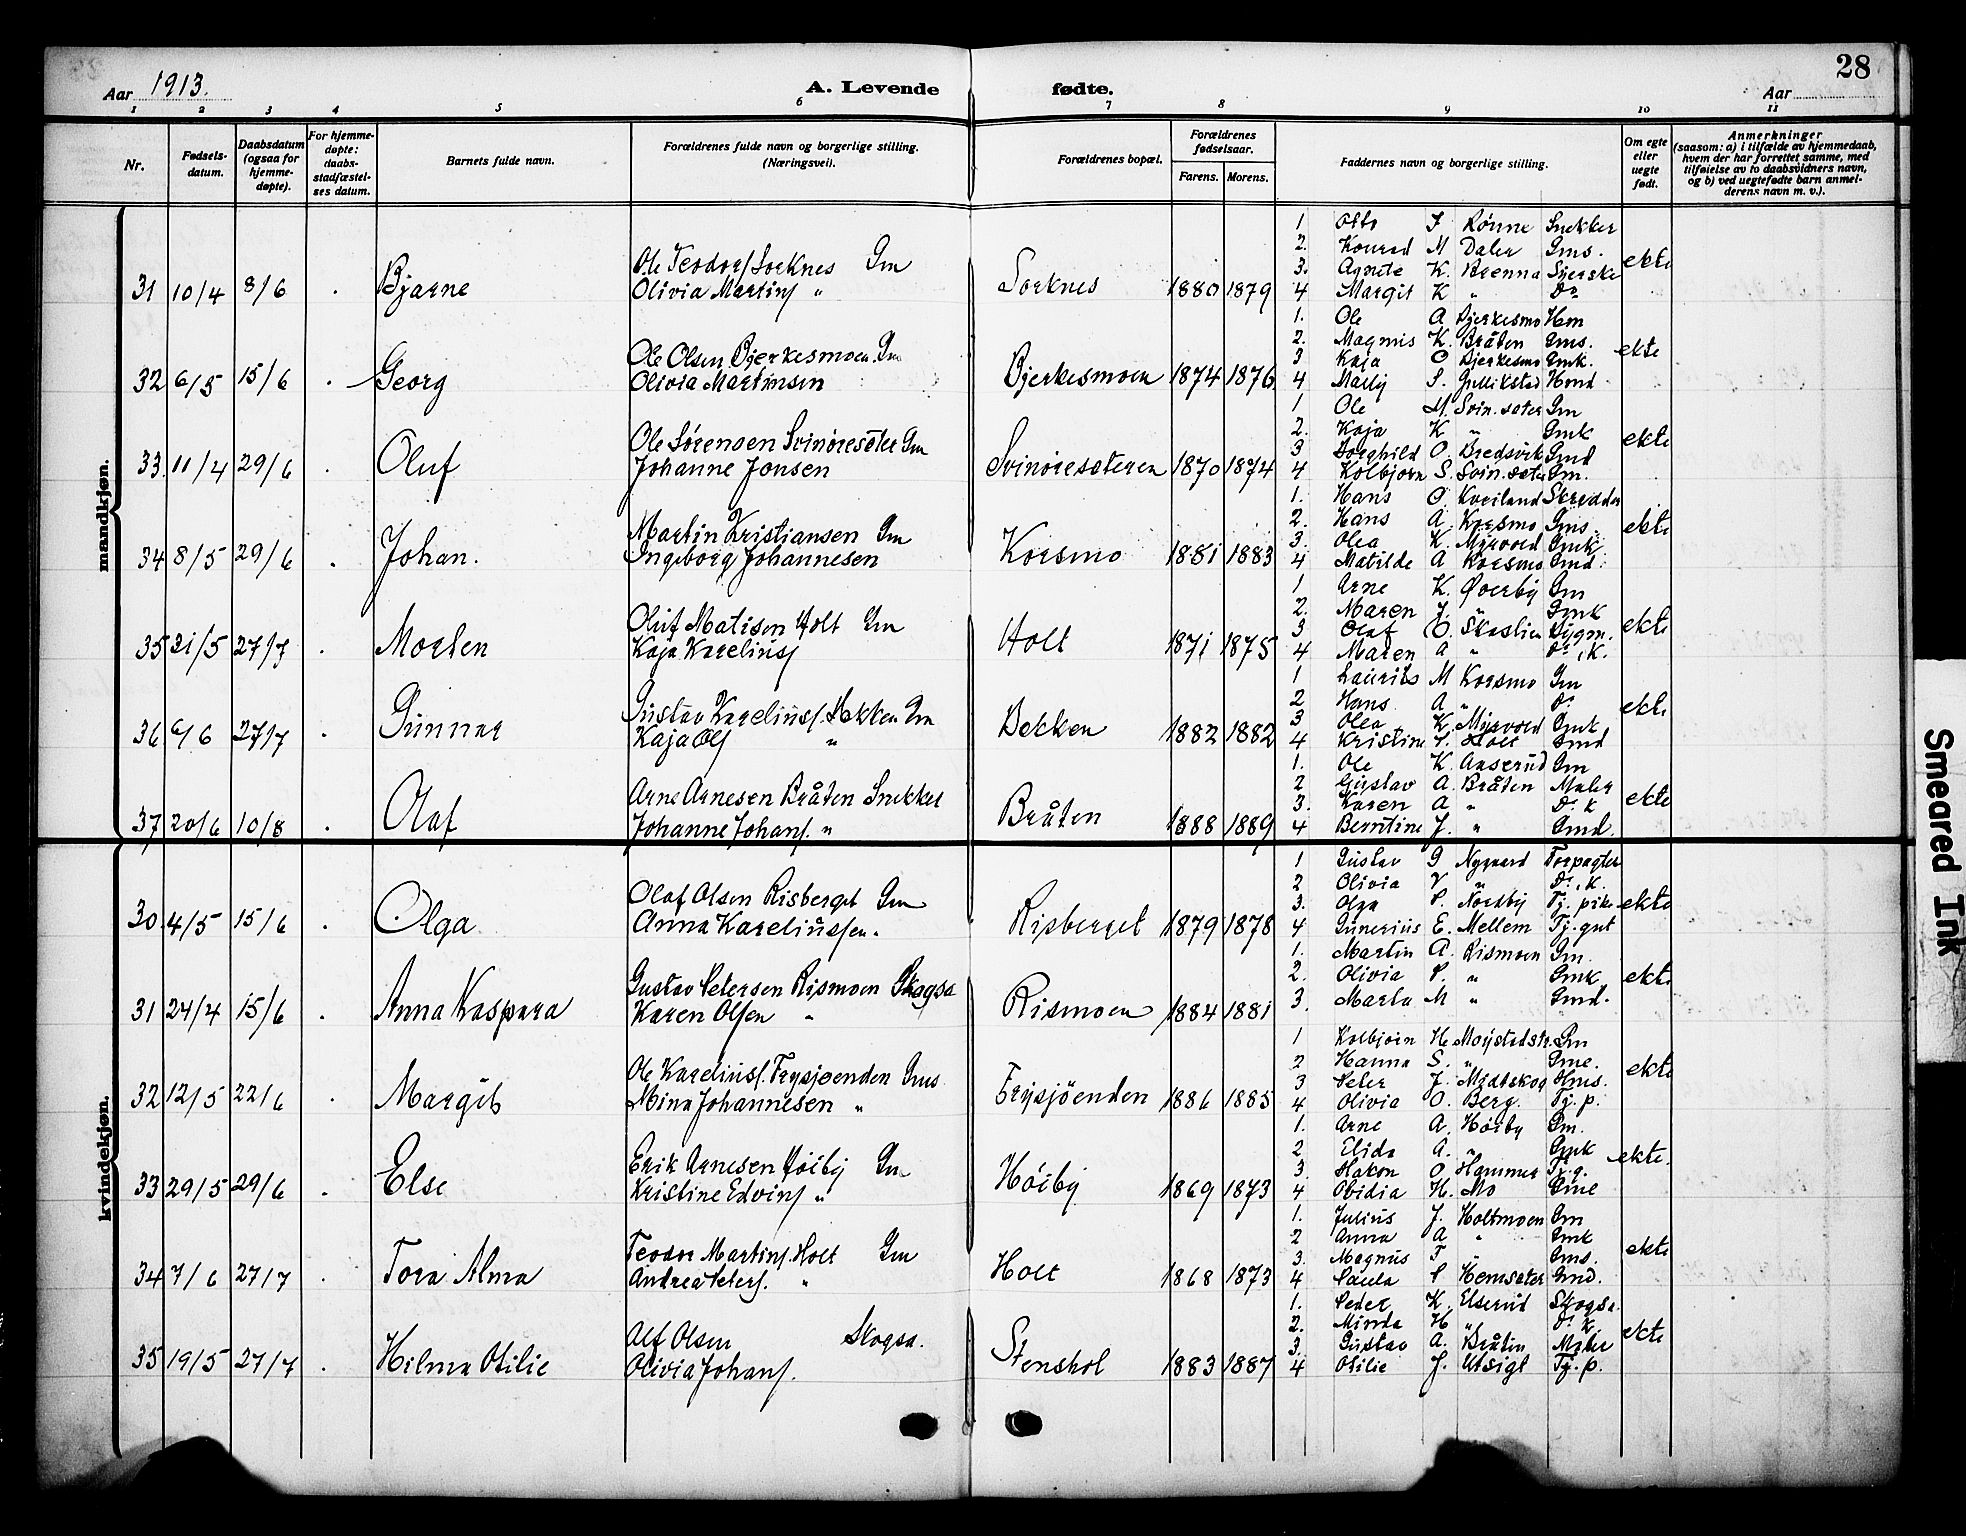 28
Aar 1913.
A. Levende fødte.
Aar
1 2 3 4 5 6 7 8 9 10 11
Nr.
Fødsels-
datum.
Daabsdatum
(ogsaa for
hjemme-
døpte).
For hjemme-
døpte:
daabs-
stadfæstel-
ses datum.
Barnets fulde navn.
Forældrenes fulde navn og borgerlige stilling.
(Næringsvei).
Forældrenes bopæl.
Forældrenes
fødselsaar.
Farens. Morens.
Faddernes navn og borgerlige stilling.
Om egte
eller
uegte
født.
Anmerkninger
(saasom: a) i tilfælde av hjemmedaab,
hvem der har forrettet samme, med
tilføielse av to daabsvidners navn,
og b) ved uegtefødte barn anmel-
derens navn m. v.).
mandkjøn.
31 10/4 8/6 Bjarne
Ole Teodorf Sorknes Gm
Olivia Martinf "
Sorknes 1880 1879
1 Otto J Rønne Snekker
2. Konrad M Daler Gms.
3. Agnete K. Brenna Syerske
4 Margit K " Do
ekte
32 6/5 15/6 Georg
Ole Olsen Bjerkesmoen Gm
Olivia Martinsen
Bjerkesmoen 1874 1876
1. Ole A Bjerkesmo Hm
2. Magnus K. Bråten Gms.
3 Kaja O Bjerkesmo Gmk.
4 Marly S. Gullikstad Hmd
ekte
33. 11/4 29/6 Oluf
Ole Sørensen Svinøresæter Gm
Johanne Jonsen
Svinøresæteren 1870 1874
1 Ole M. Svin.sæter Gm
2. Kaja K " Gmk
3 Borghild O. Bredsvik Gmd
4 Kolbjørn S. Svin.sæter Gm.
ekte
34 8/5 29/6 Johan.
Martin Kristiansen Gm
Ingeborg Johannesen
Korsmo 1881 1883
1. Hans O. Kveiland Skredder
2. Hans A. Korsmo Gms.
3. Olea K. Myrvold Gmk
4 Matilde A Korsmo Gmd.
ekte
35 31/5 27/7 Morten
Oluf Matisen Holt Gm
Kaja Kareliusf
Holt 1871 1875
1 Arne K. Øverby Gm
2. Maren J. " Gmk
3 Olaf O. Skaslien Bygm.
4 Maren A " Do, K.
ekte
36 6/6 27/7 Gunnar
Gustav Kareliusf. Bekken Gm
Kaja Olf "
Bekken 1882 1882
1 Laurits M Korsmo Gm
2 Hans. A " Do
3 Olea K. Myrvold Gmk
4 Kristine J. Holt Gmd
ekte
37 20/6 10/8 Olaf
Arne Arnesen Bråten Snekker
Johanne Johanf. "
Bråten 1888 1889
1. Ole K. Aaserud Gm
2 Gustav A. Bråten Maler
3. Karen A " Do K
4 Berntine J. " Gmd.
ekte
kvindekjøn.
30. 4/5 15/6 Olga
Olaf Olsen Risberget Gm
Anna Kareliussen.
Risberget 1879 1878
1 Gustav G Nygaard Forpagter
2 Olivia V " Do, K.
3. Olga P. Nordby Tj. pike
4 Gunerius E. Mellem Tj. gut
ekte
31 24/4 15/6 Anna Kaspara
Gustav Petersen Rismoen Skogsa
Karen Olsen "
Rismoen 1884 1881
1. Martin A. Rismoen Gm.
2. Olivia P. " Gmk
3. Marta M " Gmd.
ekte
32 12/5 22/6 Margit
Ole Kareliusf. Frysjøenden Gms
Mina Johannesen "
Frysjöenden 1886 1885
1 Kolbjørn H. Moystadstr. Gm
2 Hanna S. " Gme.
3 Peter J. Midtskog Hms.
4 Olivia O. Berg. Tj. p.
ekte
33 29/5 29/6 Else
Erik Arnesen Høiby Gm
Kristine Edvinf "
Höiby 1869 1873
1. Arne A. Høiby Gm.
2 Elida A. " Gmk
3. Hakon O. Hammer Tj. g.
4 Obidia H. Mo Gme
ekte.
34 7/6 27/7 Tora Alma
Teodor Martinf. Holt Gm
Andrea Petersf. "
Holt 1868 1873
1. Julius J. Holtmoen Gm
2 Anna A " Gmk
3. Magnus F " Gms.
4 Paula P Hemsæter Gmd.
ekte
35 19/5 27/7 Hilma Otilie
Alf Olsen Skogsa.
Olivia Johanf.
Stenshol 1883 1887
1. Peder K. Elserud Skogsa.
2. Minda H " Do K.
3. Gustav A. Bråten Maler
4 Otilie J. Utsigt Tj. p.
ekte
Smeared Ink